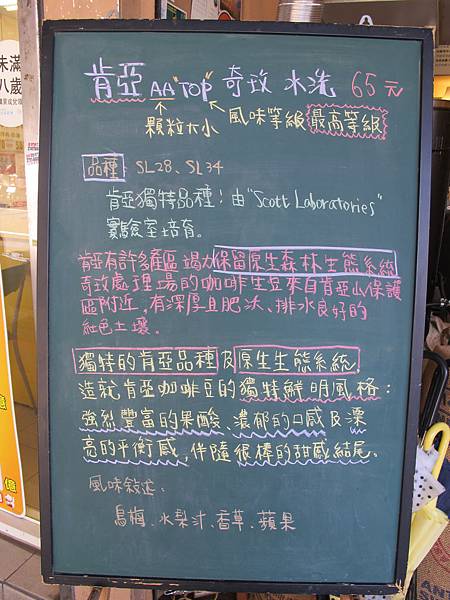 肯亞 AA "TOP" 奇玫 水洗 65元
顆粒大小
風味等級 最高等級
品種: SL28、SL34
肯亞獨特品種!由"Scott Laboratories"
實驗室培育。
肯亞有許多產區竭力保留原生森林生態系統
奇玫處理場的咖啡生豆來自肯亞山保護
區附近,有深厚且肥沃、排水良好的
紅色土壤。
獨特的肯亞品種及原生生態系統,
造就肯亞咖啡豆的獨特鮮明風格:
強烈豐富的果酸、濃郁的口感及漂
亮的平衡感,伴隨很棒的甜感結尾。
風味敘述:
烏梅、水梨汁、香草、蘋果
未滿
八歲
億